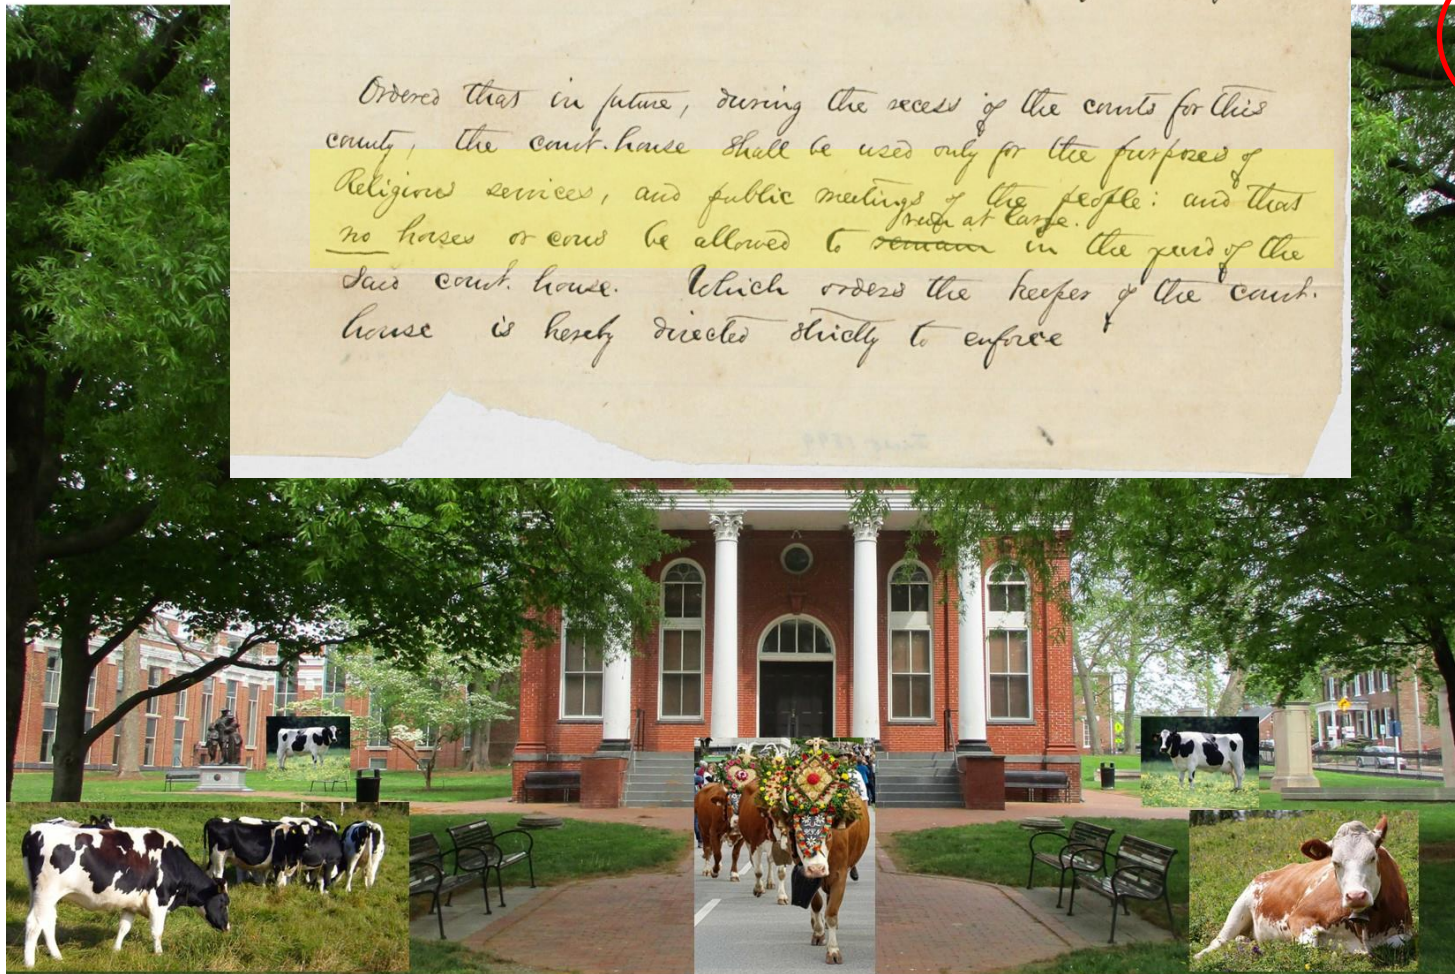 Ordered that in future, during the recess of the courts for this
county, the court-house shall be used only for the purposes of
Religious services, and public meetings of the people: and that
run at large.
no horses or cows be allowed to remain in the yard of the
said court house. Which orders the keeper of the court-
house is hereby directed strictly to enforce